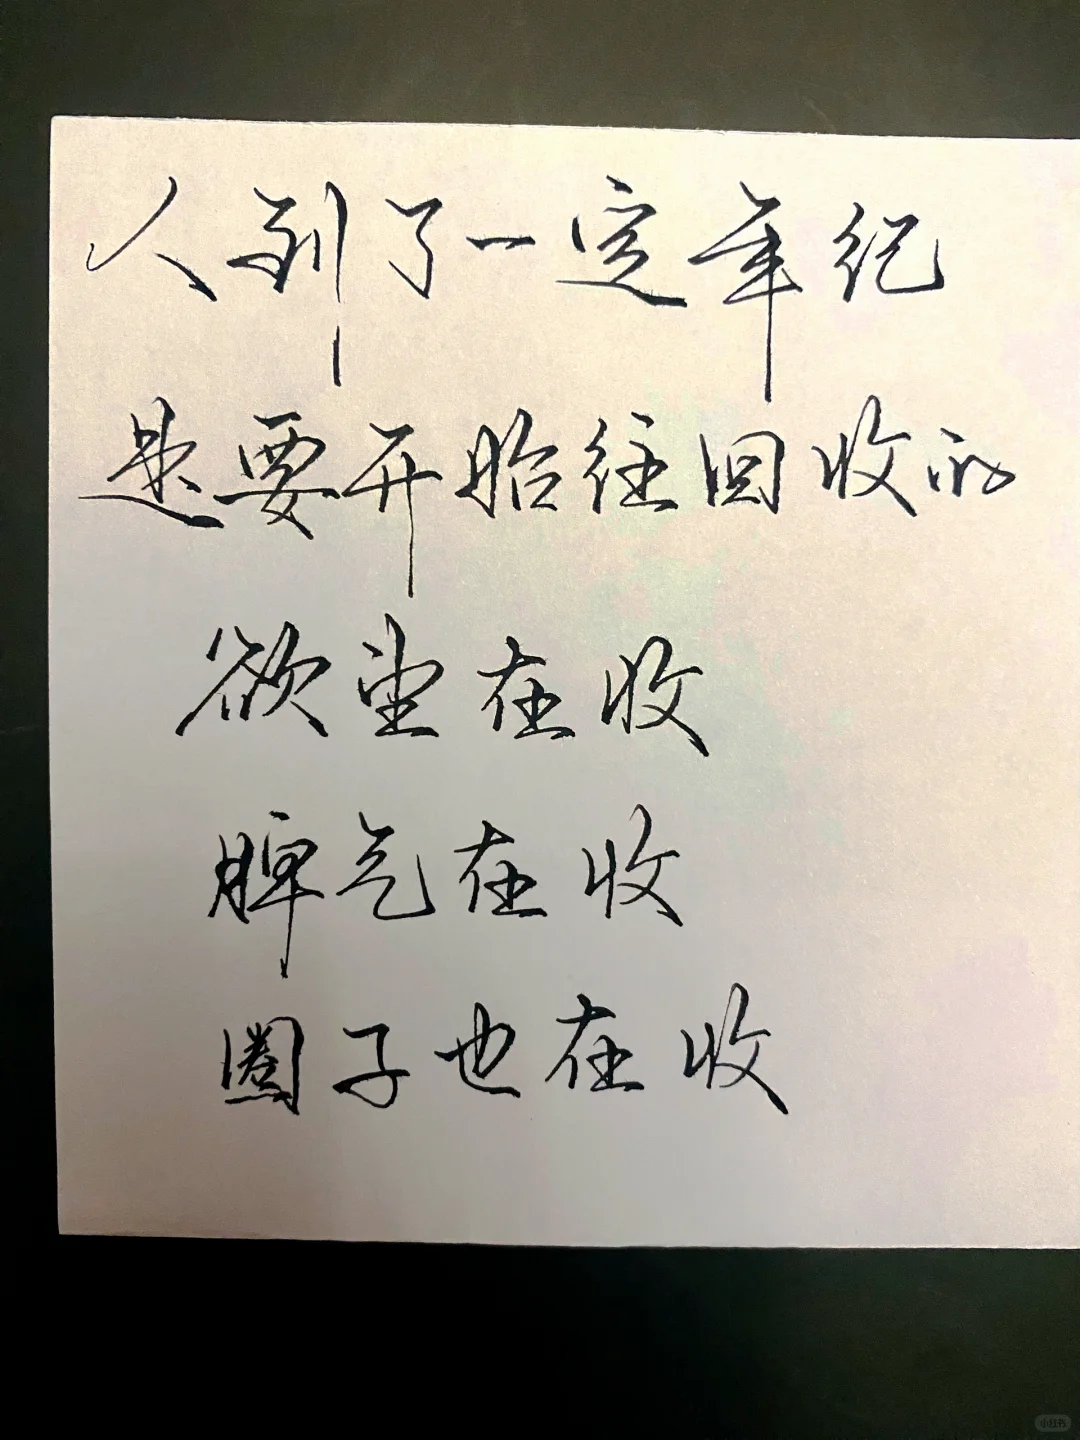 人到了一定年纪
是要开始往回收的
欲望在收
脾气在收
圈子也在收
小红书